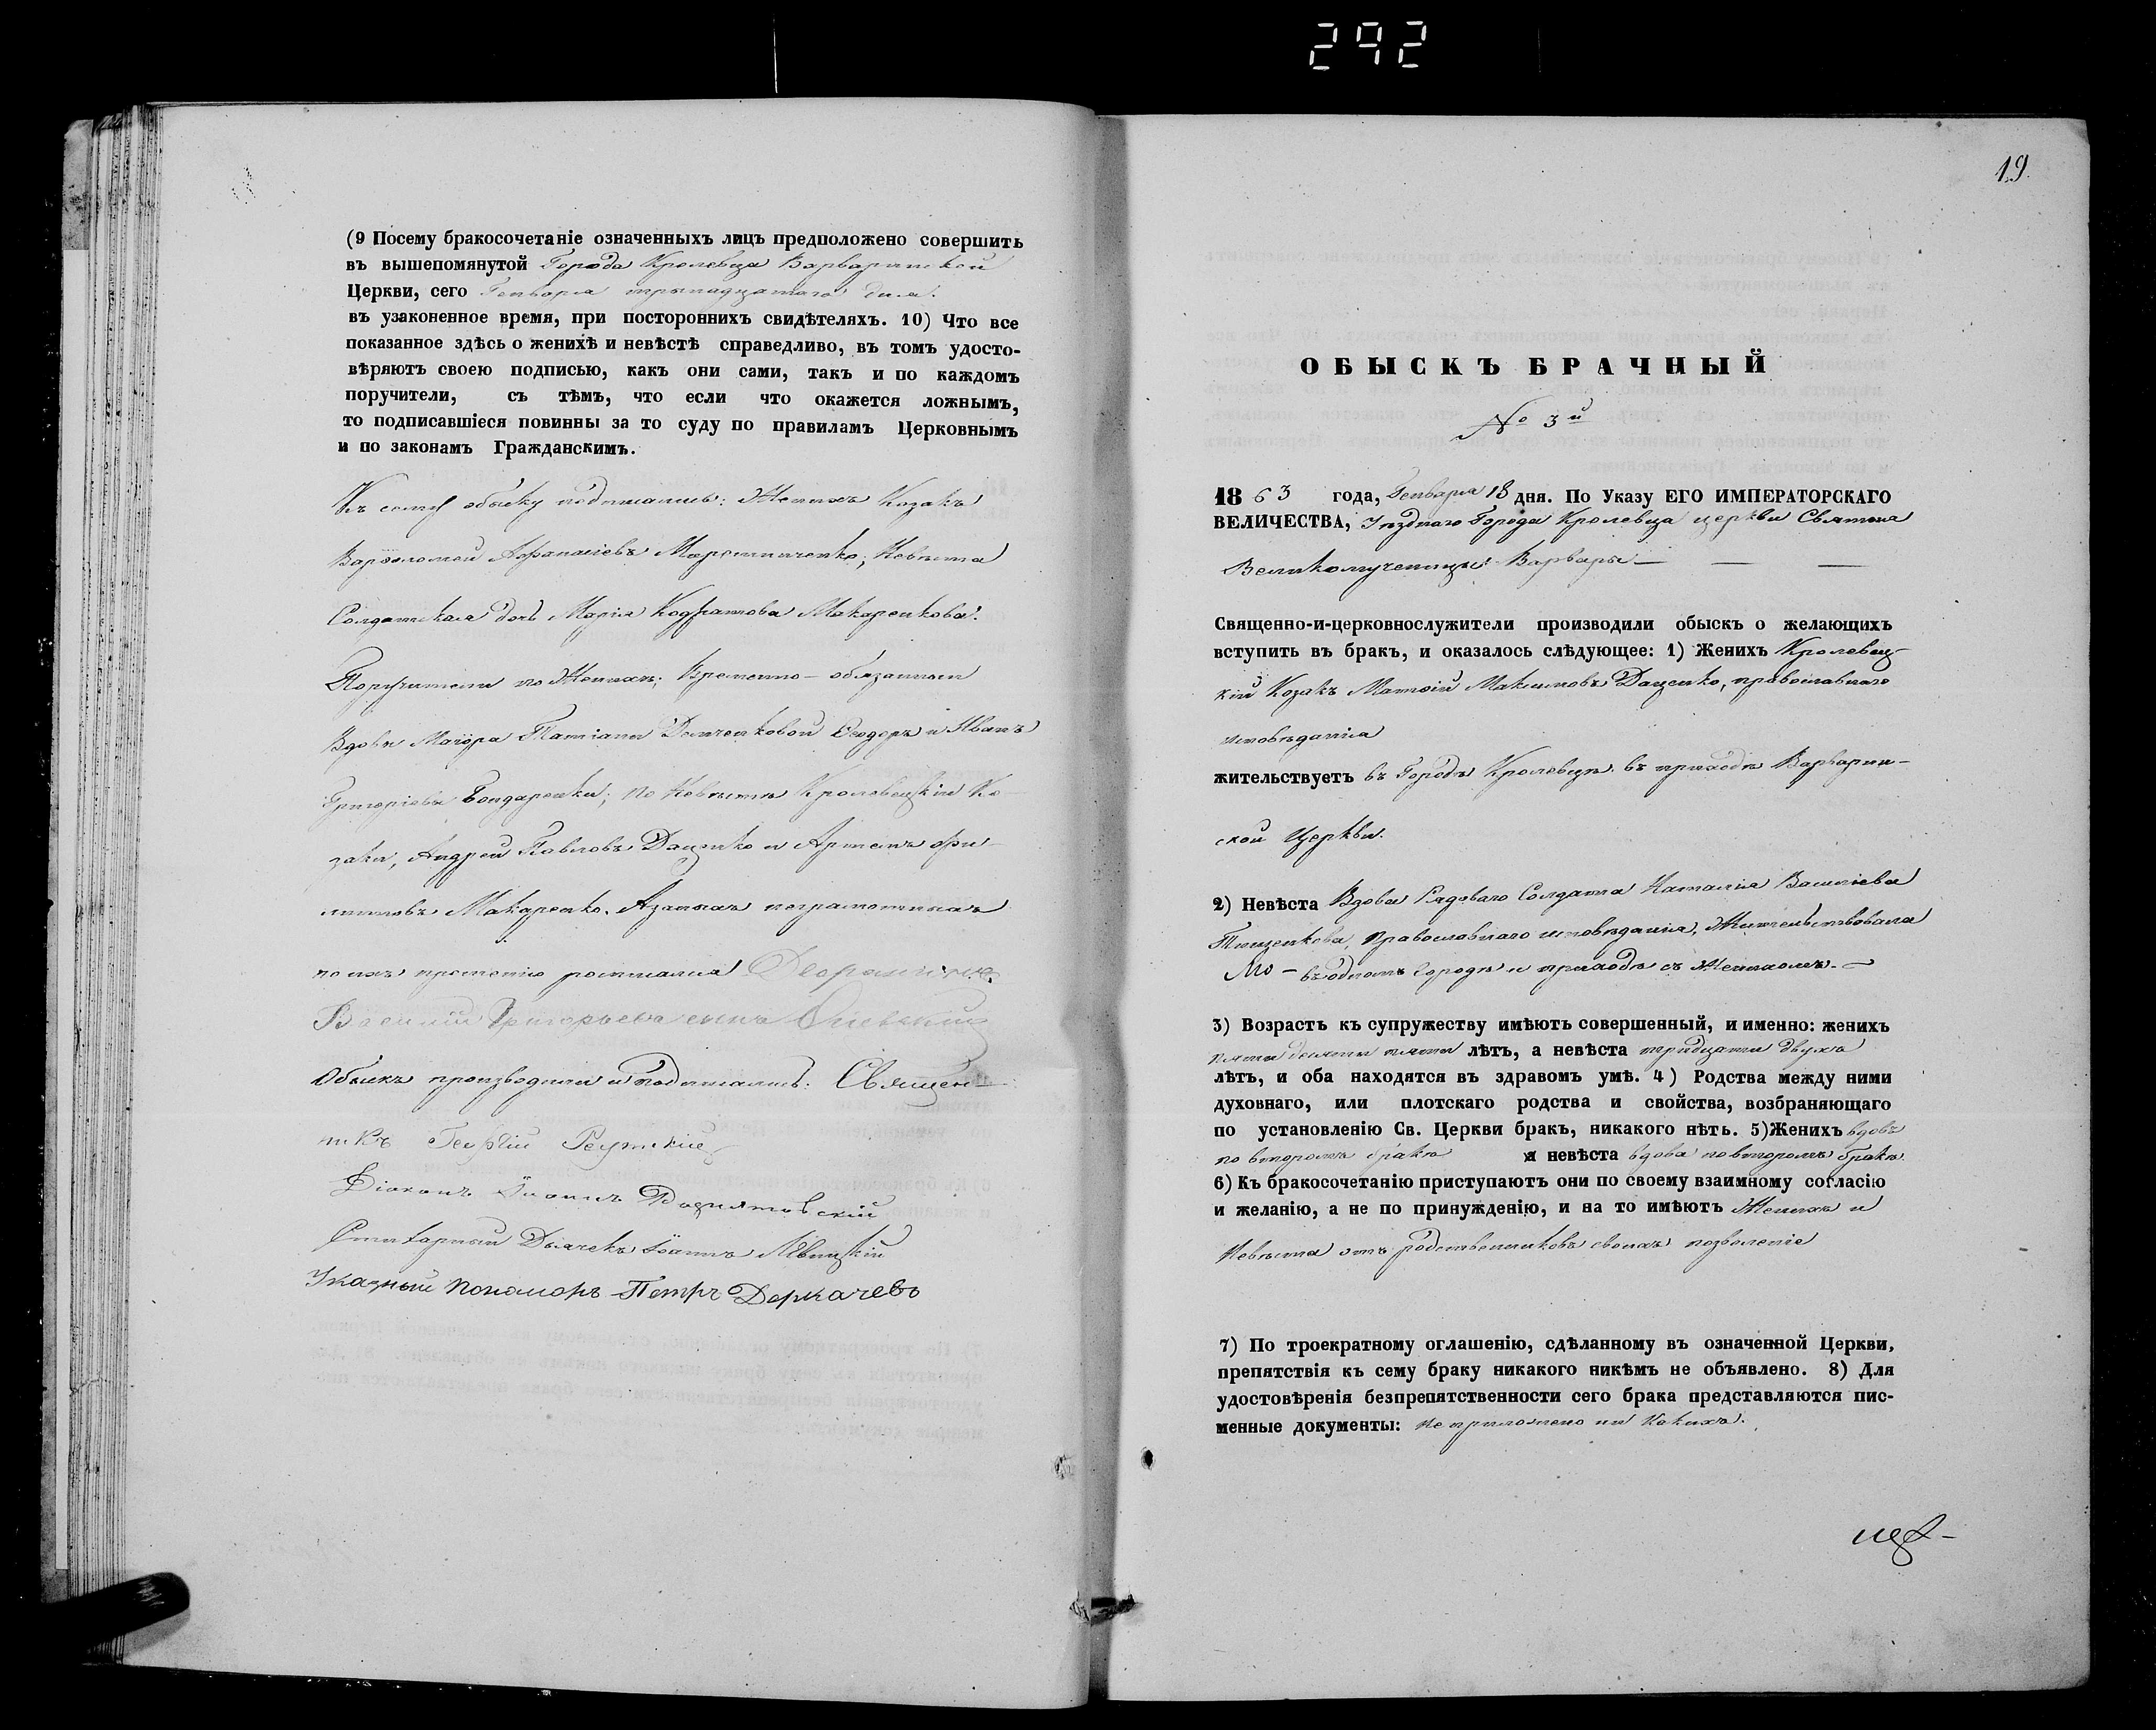 292
(9 Посему бракосочетаніе означенныхъ лицъ предположено совершить
въ вышепомянутой Города Кролевца Варваринской
Церкви, сего Генваря тринадцатаго дня.
въ узаконенное время, при постороннихъ свидѣтеляхъ. 10) Что все
показанное здѣсь о женихѣ и невѣстѣ справедливо, въ томъ удосто-
вѣряютъ своею подписью, какъ они сами, такъ и по каждомъ
поручители, съ тѣмъ, что если что окажется ложнымъ,
то подписавшіеся повинны за то суду по правиламъ Церковнымъ
и по законамъ Гражданскимъ.
Къ сему обыску подписались: Женихъ Козакъ
Варѳоломей Афанасіевъ Мартыненко, Невѣста
Солдатская дочь Марія Кодратова Макаренкова.
Поручители по Женихѣ: Временно-обязанныи
Вдовы Маіора Татіаны Демченковой Ѳеодоръ и Иванъ
Григоріевы Бондаренки; по Невѣстѣ Кролевецкіи Ко-
заки, Андрей Павловъ Даценко и Артемъ Фи-
липповъ Макаренко. А за ихъ неграмотныхъ
по ихъ прошенію росписался Дворянинъ
Василій Григорьевъ сынъ
Обыскъ производили и подписались: Священ-
никъ Георгій Реутскій
Діаконъ Іоаннъ
Стихарный Дьячекъ Іоаннъ Левицкій
Указный пономоръ Петръ Деркачевъ
19.
ОБЫСКЪ БРАЧНЫЙ
№ 3й
1863 года, Генваря 18 дня. По Указу ЕГО ИМПЕРАТОРСКАГО
ВЕЛИЧЕСТВА, Уѣзднаго Города Кролевца церкви Святыя
Великомученицы Варвары — — —
Священно-и-церковнослужители производили обыскъ о желающихъ
вступить въ бракъ, и оказалось слѣдующее: 1) Женихъ Кролевец-
кій Козакъ Матѳій Максимовъ Даценко, православнаго
исповѣданія
жительствуетъ въ Городѣ Кролевцѣ въ приходѣ Варварин-
ской Церкви.
2) Невѣста Вдова Рядоваго Солдата Наталія Василіева
Тищенкова, Православнаго исповѣданія, Жительствовала
въ одномъ городѣ и приходѣ съ Женихомъ. —
3) Возрасть къ супружеству имѣютъ совершенный, и именно: женихъ
пяти десяти пяти лѣтъ, а невѣста тридцати двухъ
лѣтъ, и оба находятся въ здравомъ умѣ. 4) Родства между ними
духовнаго, или плотскаго родства и свойства, возбраняющаго
по установленію Св. Церкви бракъ, никакого нѣть. 5) Женихъ вдовъ
по второмъ бракѣ и невѣста вдова по второмъ бракѣ
6) Къ бракосочетанію приступаютъ они по своему взаимному согласію
и желанію, а не по принужденію, и на то имѣютъ Женихъ и
Невѣста отъ родственниковъ своихъ позволеніе
7) По троекратному оглашенію, сдѣланному въ означенной Церкви,
препятствія къ сему браку никакого никѣмъ не объявлено. 8) Для
удостовѣренія безпрепятственности сего брака представляются пис-
менные документы: не приложено ни какихъ.